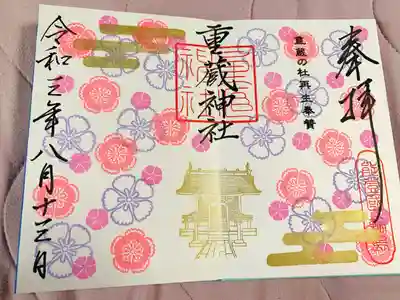 奉拝
重蔵の杜再生奉賛
重蔵神社
令和三年八月十三日